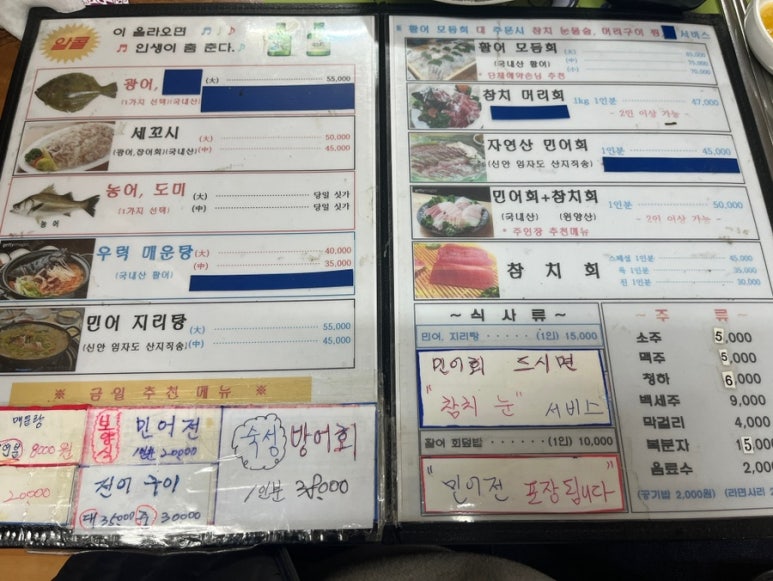 알콜
이 올라오면
인생이 춤 춘다.
광어, (大) 55,000
(1가지 선택)(국내산)
세꼬시 (大) 50,000
(광어,장어회)(국내산)(中) 45,000
농어, 도미 (大) 당일 싯가
(1가지 선택) (中) 당일 싯가
농어
우럭 매운탕 (大) 40,000
(국내산 활어) (中) 35,000
민어 지리탕 (大) 55,000
(신안 임자도 산지직송) (中) 45,000
※ 금일 추천 메뉴 ※
매운탕
8000원
20000
보양식 민어전
1인분 20000
전어 구이
(대) 35000 (중) 30000
숙성 방어회
1인분 38000
※ 활어 모듬회 대 주문시 참치 눈물술, 머리구이 찜, 서비스
활어 모듬회 (大)
(국내산 활어) (中) 75,000
* 단체예약손님 추천 (小) 70,000
참치 머리회 1kg 1인분 47,000
- 2인 이상 가능 -
자연산 민어회 1인분 45,000
(신안 임자도 산지직송)
민어회+참치회 1인분 50,000
(국내산) (원양산) - 2인 이상 가능 -
* 주인장 추천메뉴
참치회 스페셜 1인분 45,000
특 1인분 35,000
진 1인분 30,000
~ 식 사 류 ~
민어. 지리탕 (1인) 15,000
민어회 드시면
"참치 눈" 서비스
활어 회덮밥 (1인) 10,000
"민어전 포장됩니다"
~ 주 류 ~
소주 5,000
맥주 5,000
청하 6,000
백세주 9,000
막걸리 4,000
복분자 15,000
음료수 2,000
(공기밥 2,000원) (라면사리 2